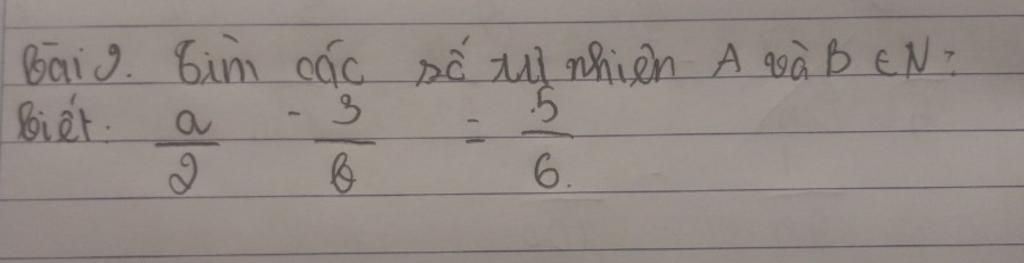 Bài 9. Tìm các số tự nhiên A và B ∈ N:
Biết: a/2 - 3/b = 5/6.